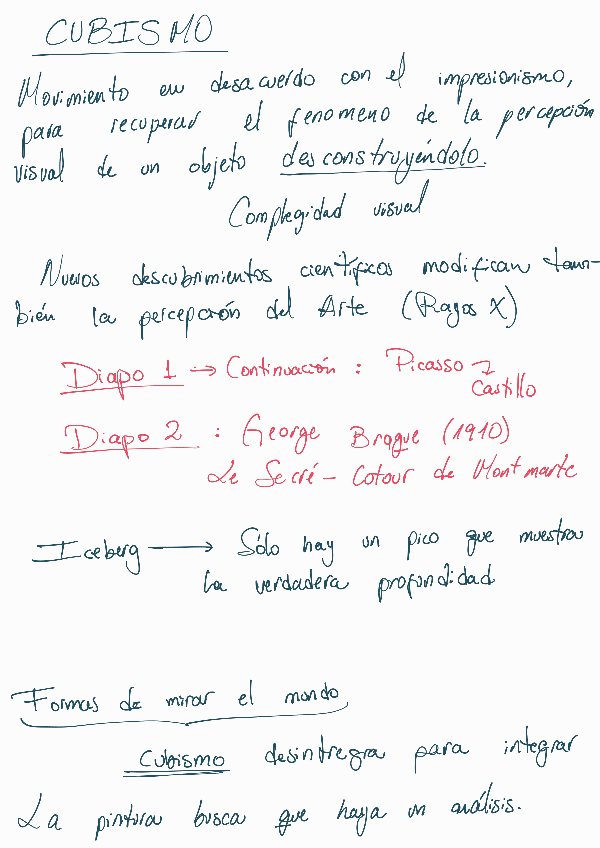 CUBISMO
Movimiento en desacuerdo con el impresionismo,
para recuperar el fenomeno de la percepción
visual de un objeto desconstruyéndolo.
Complegidad visual
Nuevos descubrimientos científicos modifican tam-
bién la percepción del Arte (Rayos X)
Diapo 1 → Continuación : Picasso
Castillo
Diapo 2 : George Braque (1910)
Le Secré - Cotour de Montmarte
Iceberg → Sólo hay un pico que muestra
la verdadera profundidad
Formas de mirar el mundo
Cubismo desintregra para integrar
La pintura busca que haya un análisis.